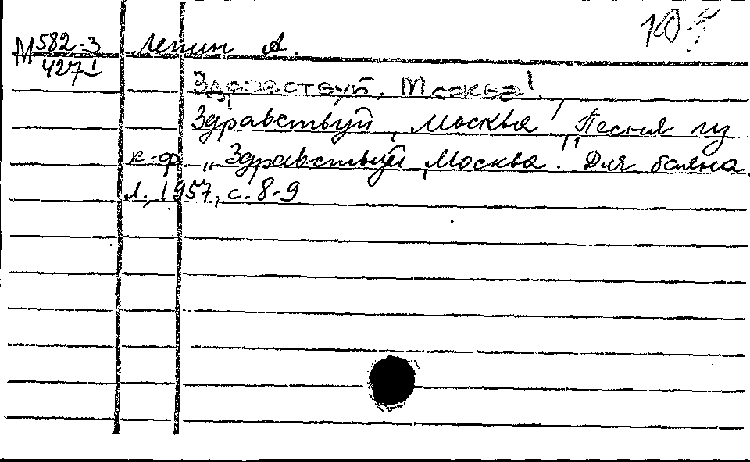 М 582-3 Лепин А.
427
Здравствуй, Москва!
Здравствуй, Москва! Песня из
к-ф. „Здравствуй, Москва." Для баяна.
Л., 1957, с. 8-9